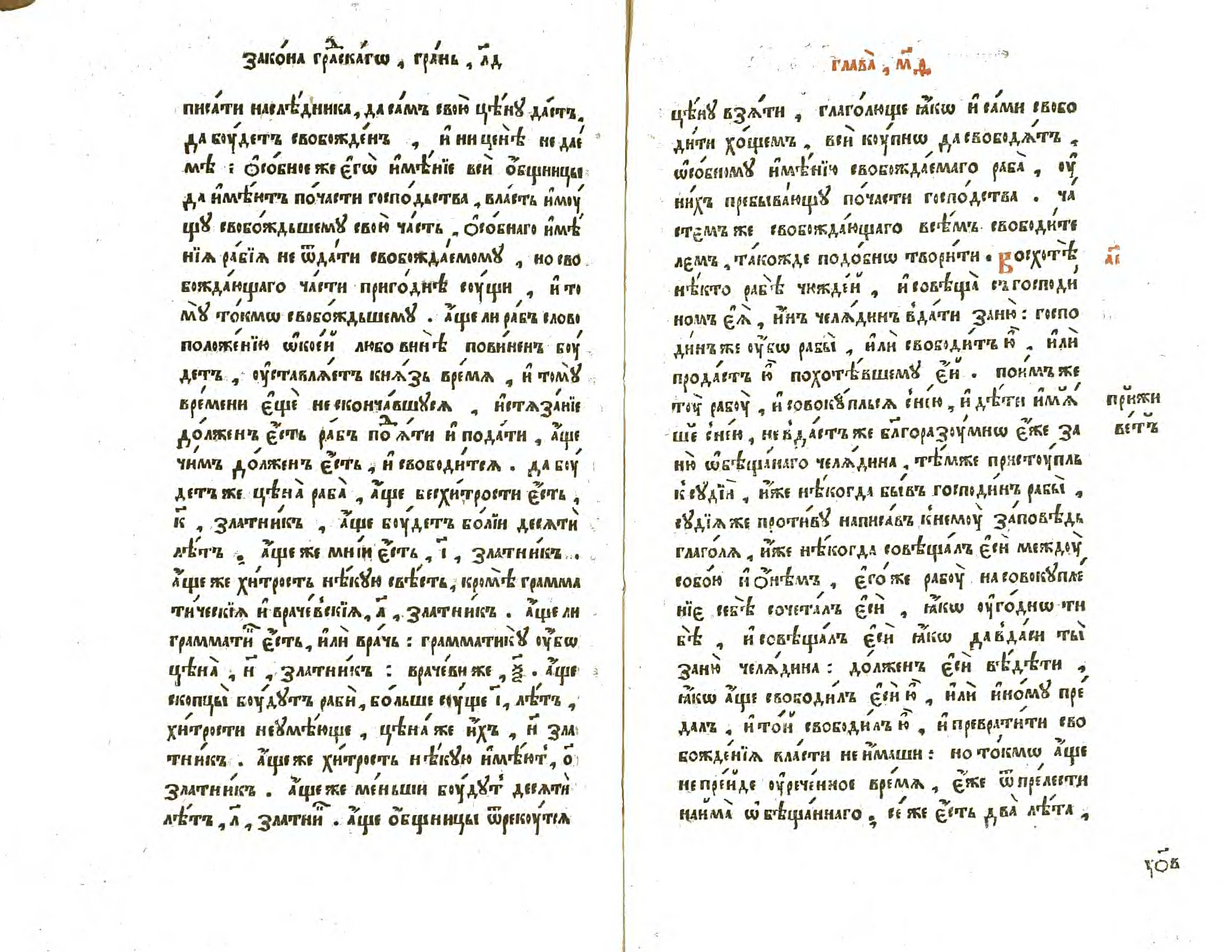 Зако́на гра́дскагѡ , гра́нь , л҃д
писа́ти наслѣ́дника , да са́мъ свою̀ цѣ́ну да́стъ ,
да бꙋ́детъ свобожде́нъ , и҆ ни цѣнѣ̀ не дае́
мѣ : ѻ҆со́бное же є҆гѡ̀ и҆мѣ́нїе всѝ ѻ҆́бщницы
да и҆мѣ́ютъ по ча́сти госпо́дьства , вла́сть и҆мꙋ́
щꙋ свобо́ждьшемꙋ свою̀ ча́сть , ѻ҆со́бнаго и҆мѣ́
нїѧ ра́бїѧ не ѿда́ти свобожда́емомꙋ , но сво
божда́ющаго ча́сти приго́днѣ сꙋ́щи , и҆ то
мꙋ̀ то́кмѡ свобо́ждьшемꙋ . а҆́ще ли ра́бъ слово
положе́нїю ѡ҆ ко́ей любо винѣ̀ пови́ненъ бꙋ́
детъ , оу҆ставлѧ́етъ кнѧ́зь вре́мѧ , и҆ томꙋ̀
вре́мени є҆щѐ не сконча́вшꙋсѧ , и҆стѧза́нїе
до́лженъ є҆́сть ра́бъ под̾ѧ́ти и҆ пода́ти , а҆́ще
чи́мъ до́лженъ є҆́сть , и҆ свободи́тсѧ . да бꙋ́
детъ же цѣна̀ раба̀ , а҆́ще бесхи́трости є҆́сть ,
к҃ , зла́тникъ , а҆́ще бꙋ́детъ бо́лїи десѧтѝ
лѣ́тъ . а҆́ще же мні́и є҆́сть , і҃ , зла́тникъ .
а҆́ще же хи́трость нѣ́кꙋю свѣ́сть , кро́мѣ грамма
ти́ческїѧ и҆ враче́вскїѧ , л҃ , зла́тникъ . а҆́ще ли
граммати́къ є҆́сть , и҆лѝ вра́чь : граммати́кꙋ оу҆́бѡ
цѣна̀ , н҃ , зла́тникъ : враче́ви же , ѯ҃ . а҆́ще
скопцы̀ бꙋ́дꙋтъ рабѝ , бо́льше сꙋ́ще і҃ , лѣ́тъ ,
хи́трости не ᲂумѣ́юще , цѣна́ же и҆́хъ , н҃ зла́
тникъ . а҆́ще же хи́трость нѣ́кꙋю и҆мѣ́ютъ , ѻ҃
зла́тникъ . а҆́ще же ме́ньши бꙋ́дꙋтъ десѧтѝ
лѣ́тъ , л҃ , зла́тникъ . а҆́ще ѻ҆́бщницы ѿрекꙋ́тсѧ
глава̀ , м҃д
цѣ́нꙋ взѧ́ти , глаго́люще ꙗ҆́кѡ и҆ са́ми свобо
ди́ти хо́щемъ , всѝ кꙋ́пнѡ да свободѧ́тъ ,
ѡ҆со́бномꙋ и҆мѣ́нїю свобожда́емаго раба̀ , оу҆
ни́хъ пребыва́ющꙋ по ча́сти госпо́дства . ча́
стемъ же свобожда́ющаго всѣ́мъ свободи́те
лемъ , та́кожде подо́бнѡ твори́ти . Восхотѣ̀
а҃і
нѣ́кто рабѣ̀ чюжде́й , и҆ совѣща̀ съ господи́
номъ є҆ѧ̀ , и҆́нъ челѧ́динъ вда́ти за ню̀ : госпо
ди́нъ же оу҆́бѡ рабы̀ , и҆лѝ свободи́тъ ю҆̀ , и҆лѝ
прода́стъ ю҆̀ похотѣ́вшемꙋ є҆́й . пои́мъ же
тꙋ̀ рабꙋ̀ , и҆ совокꙋ́плься с не́ю , и҆ дѣ́ти и҆мѣ́ѧ
прижи
ше́ с не́ю , не вда́стъ же бл҃горазꙋ́мнѡ є҆́же за
ве́тъ
ню̀ ѡ҆бѣща́наго челѧ́дина , тѣ́мже пристꙋ́пль
к сꙋдїѝ , и҆́же нѣ́когда бы́въ господи́нъ рабы̀ ,
сꙋдїѧ́ же проти́вꙋ написа́въ к немꙋ̀ за́повѣдь
глаго́лѧ , и҆́же нѣ́когда совѣща́лъ є҆сѝ междꙋ̀
собо́ю и҆ ѻ҆́нѣмъ , є҆го́же рабꙋ̀ на совокꙋпле́
нїе себѣ̀ сочета́лъ є҆сѝ , ꙗ҆́кѡ оу҆го́днѡ ти
бѣ̀ , и҆ совѣща́лъ є҆сѝ ꙗ҆́кѡ да вда́си ты̀
за ню̀ челѧ́дина : до́лженъ є҆сѝ вѣ́дѣти ,
ꙗ҆́кѡ а҆́ще свободи́лъ є҆сѝ ю҆̀ , и҆лѝ и҆но́мꙋ пре́
далъ , и҆ то́й свободи́лъ ю҆̀ , и҆ преврати́ти сво
божде́нїѧ вла́сти не и҆́маши : но то́кмѡ а҆́ще
не пре́йде оу҆рече́нное вре́мѧ , є҆́же ѿ пре́лести
найма̀ ѡ҆бѣща́ннаго , се́ же є҆́сть два̀ лѣ́та ,
уѻ҃в